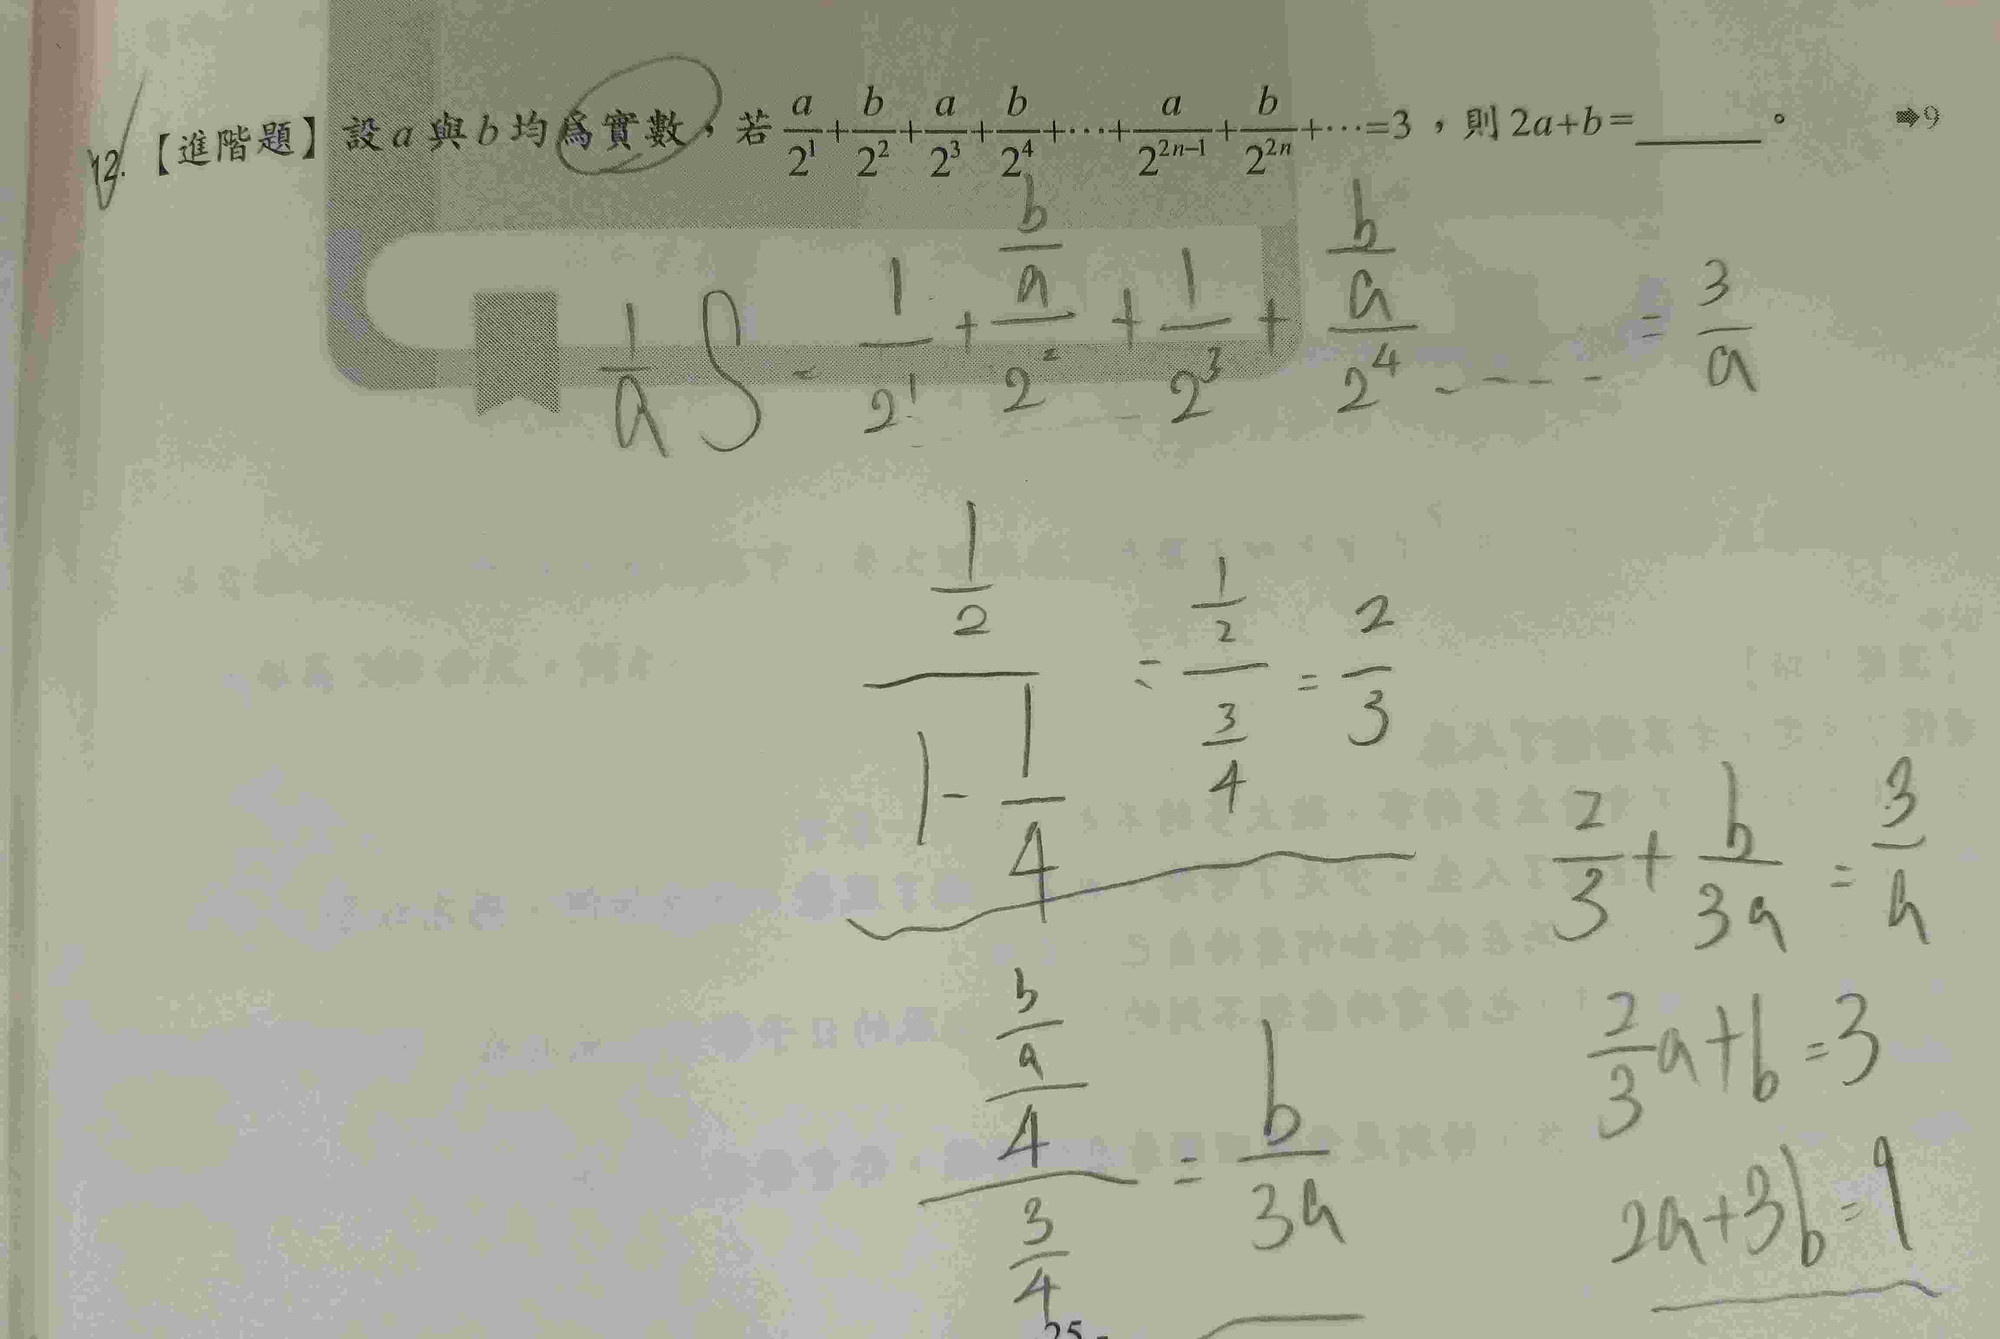 12.【進階題】設a與b均為實數，若 a/2^1 + b/2^2 + a/2^3 + b/2^4 + ⋯ + a/2^(2n−1) + b/2^(2n) + ⋯ = 3，則 2a+b= ______。 ➡9
1/a S = 1/2^1 + (b/a)/2^2 + 1/2^3 + (b/a)/2^4 ----- = 3/a
(1/2)/(1-1/4) = (1/2)/(3/4) = 2/3
2/3 + b/3a = 3/a
((b/a)/4)/(3/4) = b/3a
2/3a+b=3
2a+3b=9
25 -